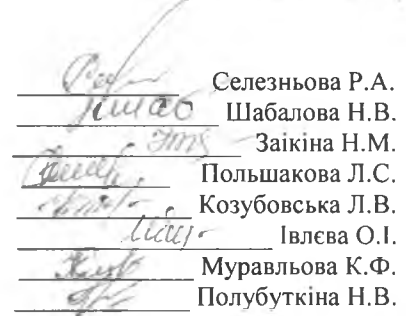 Селезньова Р.А.
Шабалова Н.В.
Заікіна Н.М.
Польшакова Л.С.
Козубовська Л.В.
Івлєва О.І.
Муравльова К.Ф.
Полубуткіна Н.В.